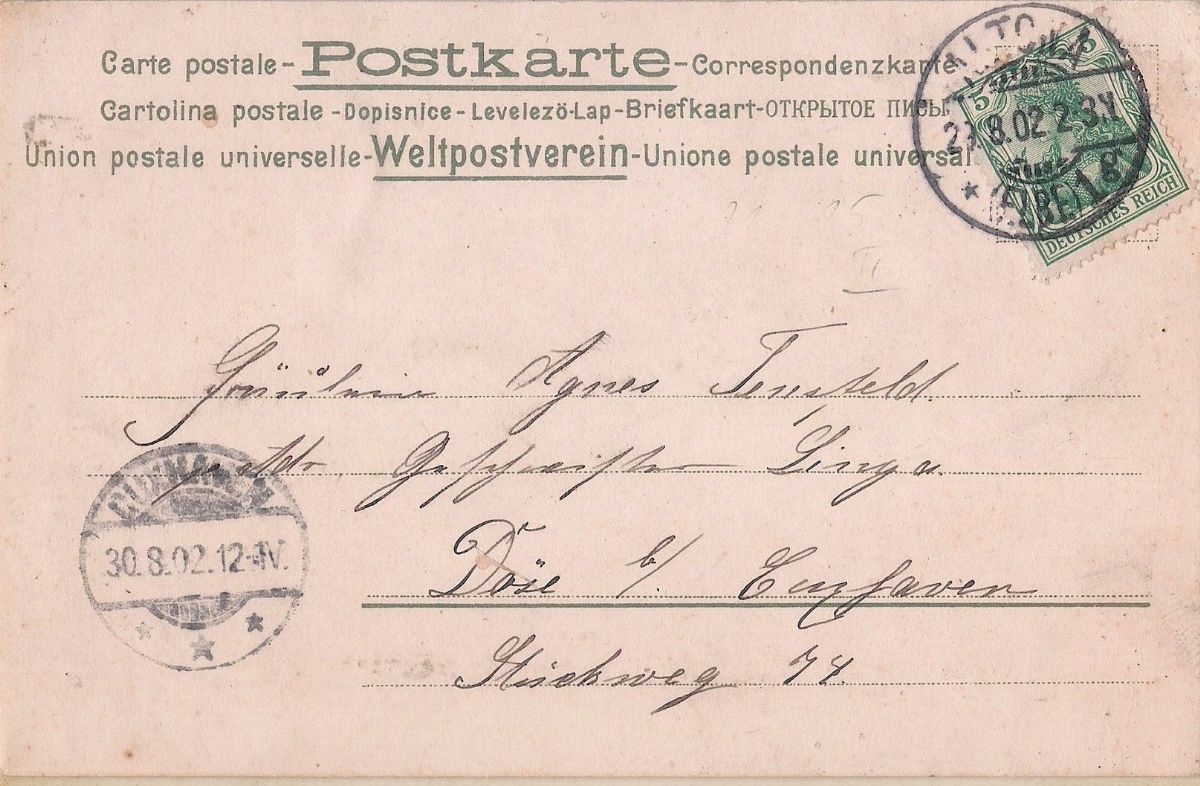 Carte postale - Postkarte - Correspondenzkarte
Cartolina postale - Dopisnice - Levelezö-Lap - Briefkaart - ОТКРЫТОЕ ПИСЬ
Union postale universelle - Weltpostverein - Unione postale universal
ALTONA
5 5
29.8.02 2-3N
(ELBE) 1 g
DEUTSCHES REICH
II
Fräulein Agnes Tensfeld.
Geschwister
CUXHAVEN
30.8.02.12-1V.
Döse b/ Cuxhaven
Strichweg 78.